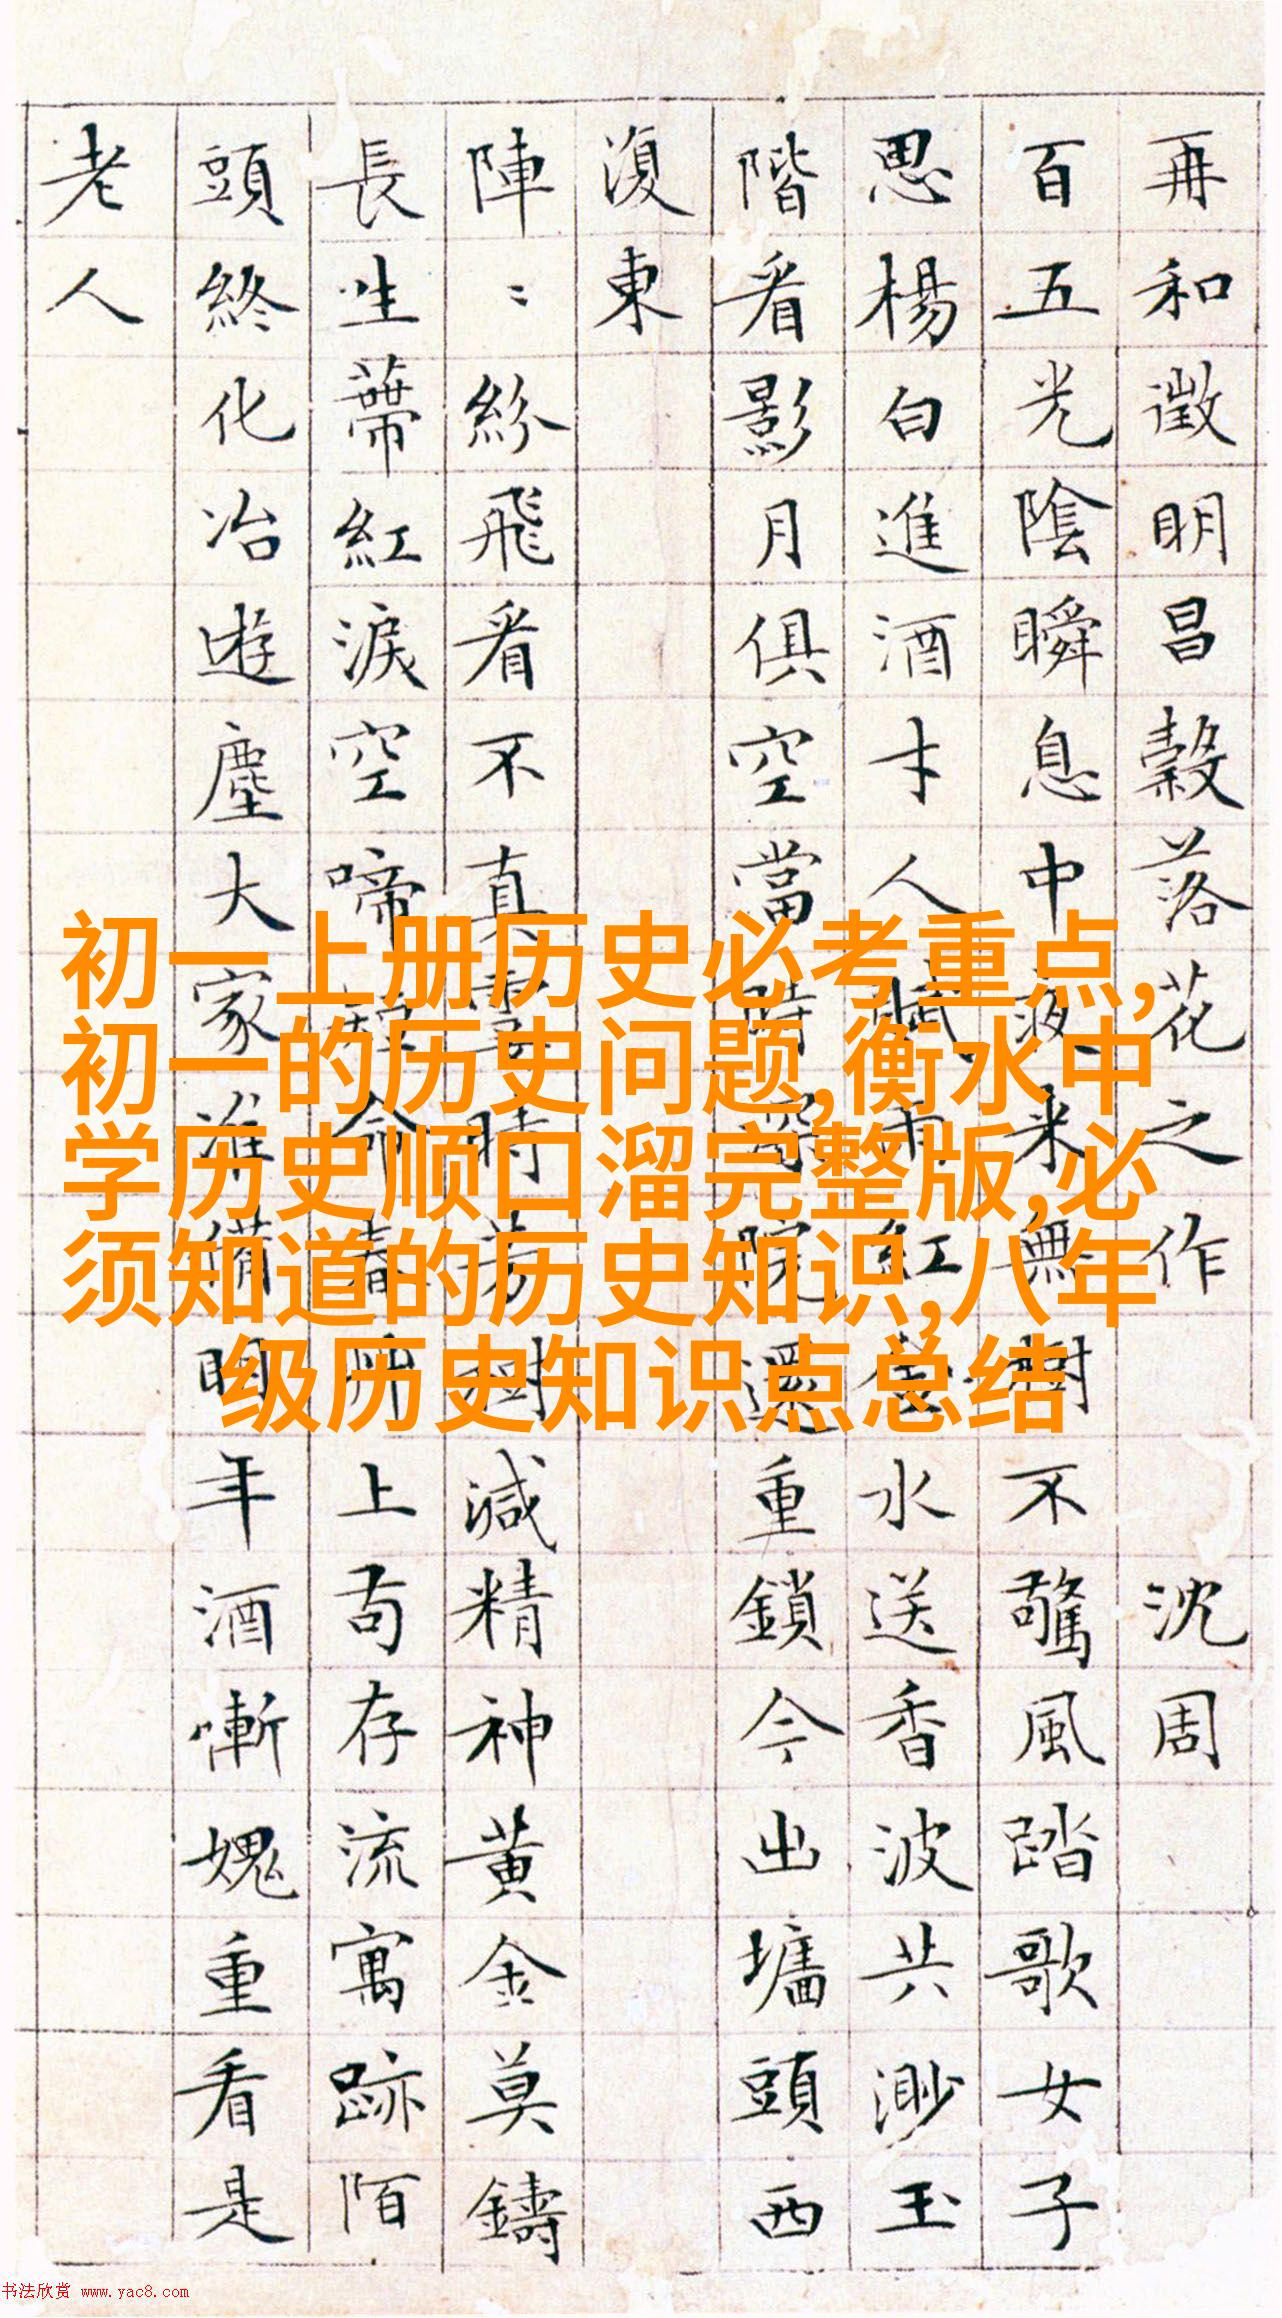 再和徵明昌穀落花之作 沈周
百五光陰瞬息中夜来無樹不驚風踏歌女子
思楊白進酒才人賦雨紅金水送香波共渺玉
階看影月俱空當時深院還重鎖今出墻頭西
復東
陣〻紛飛看不真霎時芳樹減精神黄金莫鑄
長生蔕紅淚空啼短命春艸上苟存流寓跡陌
頭終化冶遊塵大家准備明年酒慚媿重看是
老人
初一上册历史必考重点,
初一的历史问题,衡水中
学历史顺口溜完整版,必
须知道的历史知识,八年
级历史知识点总结
书法欣赏 www.yac8.com